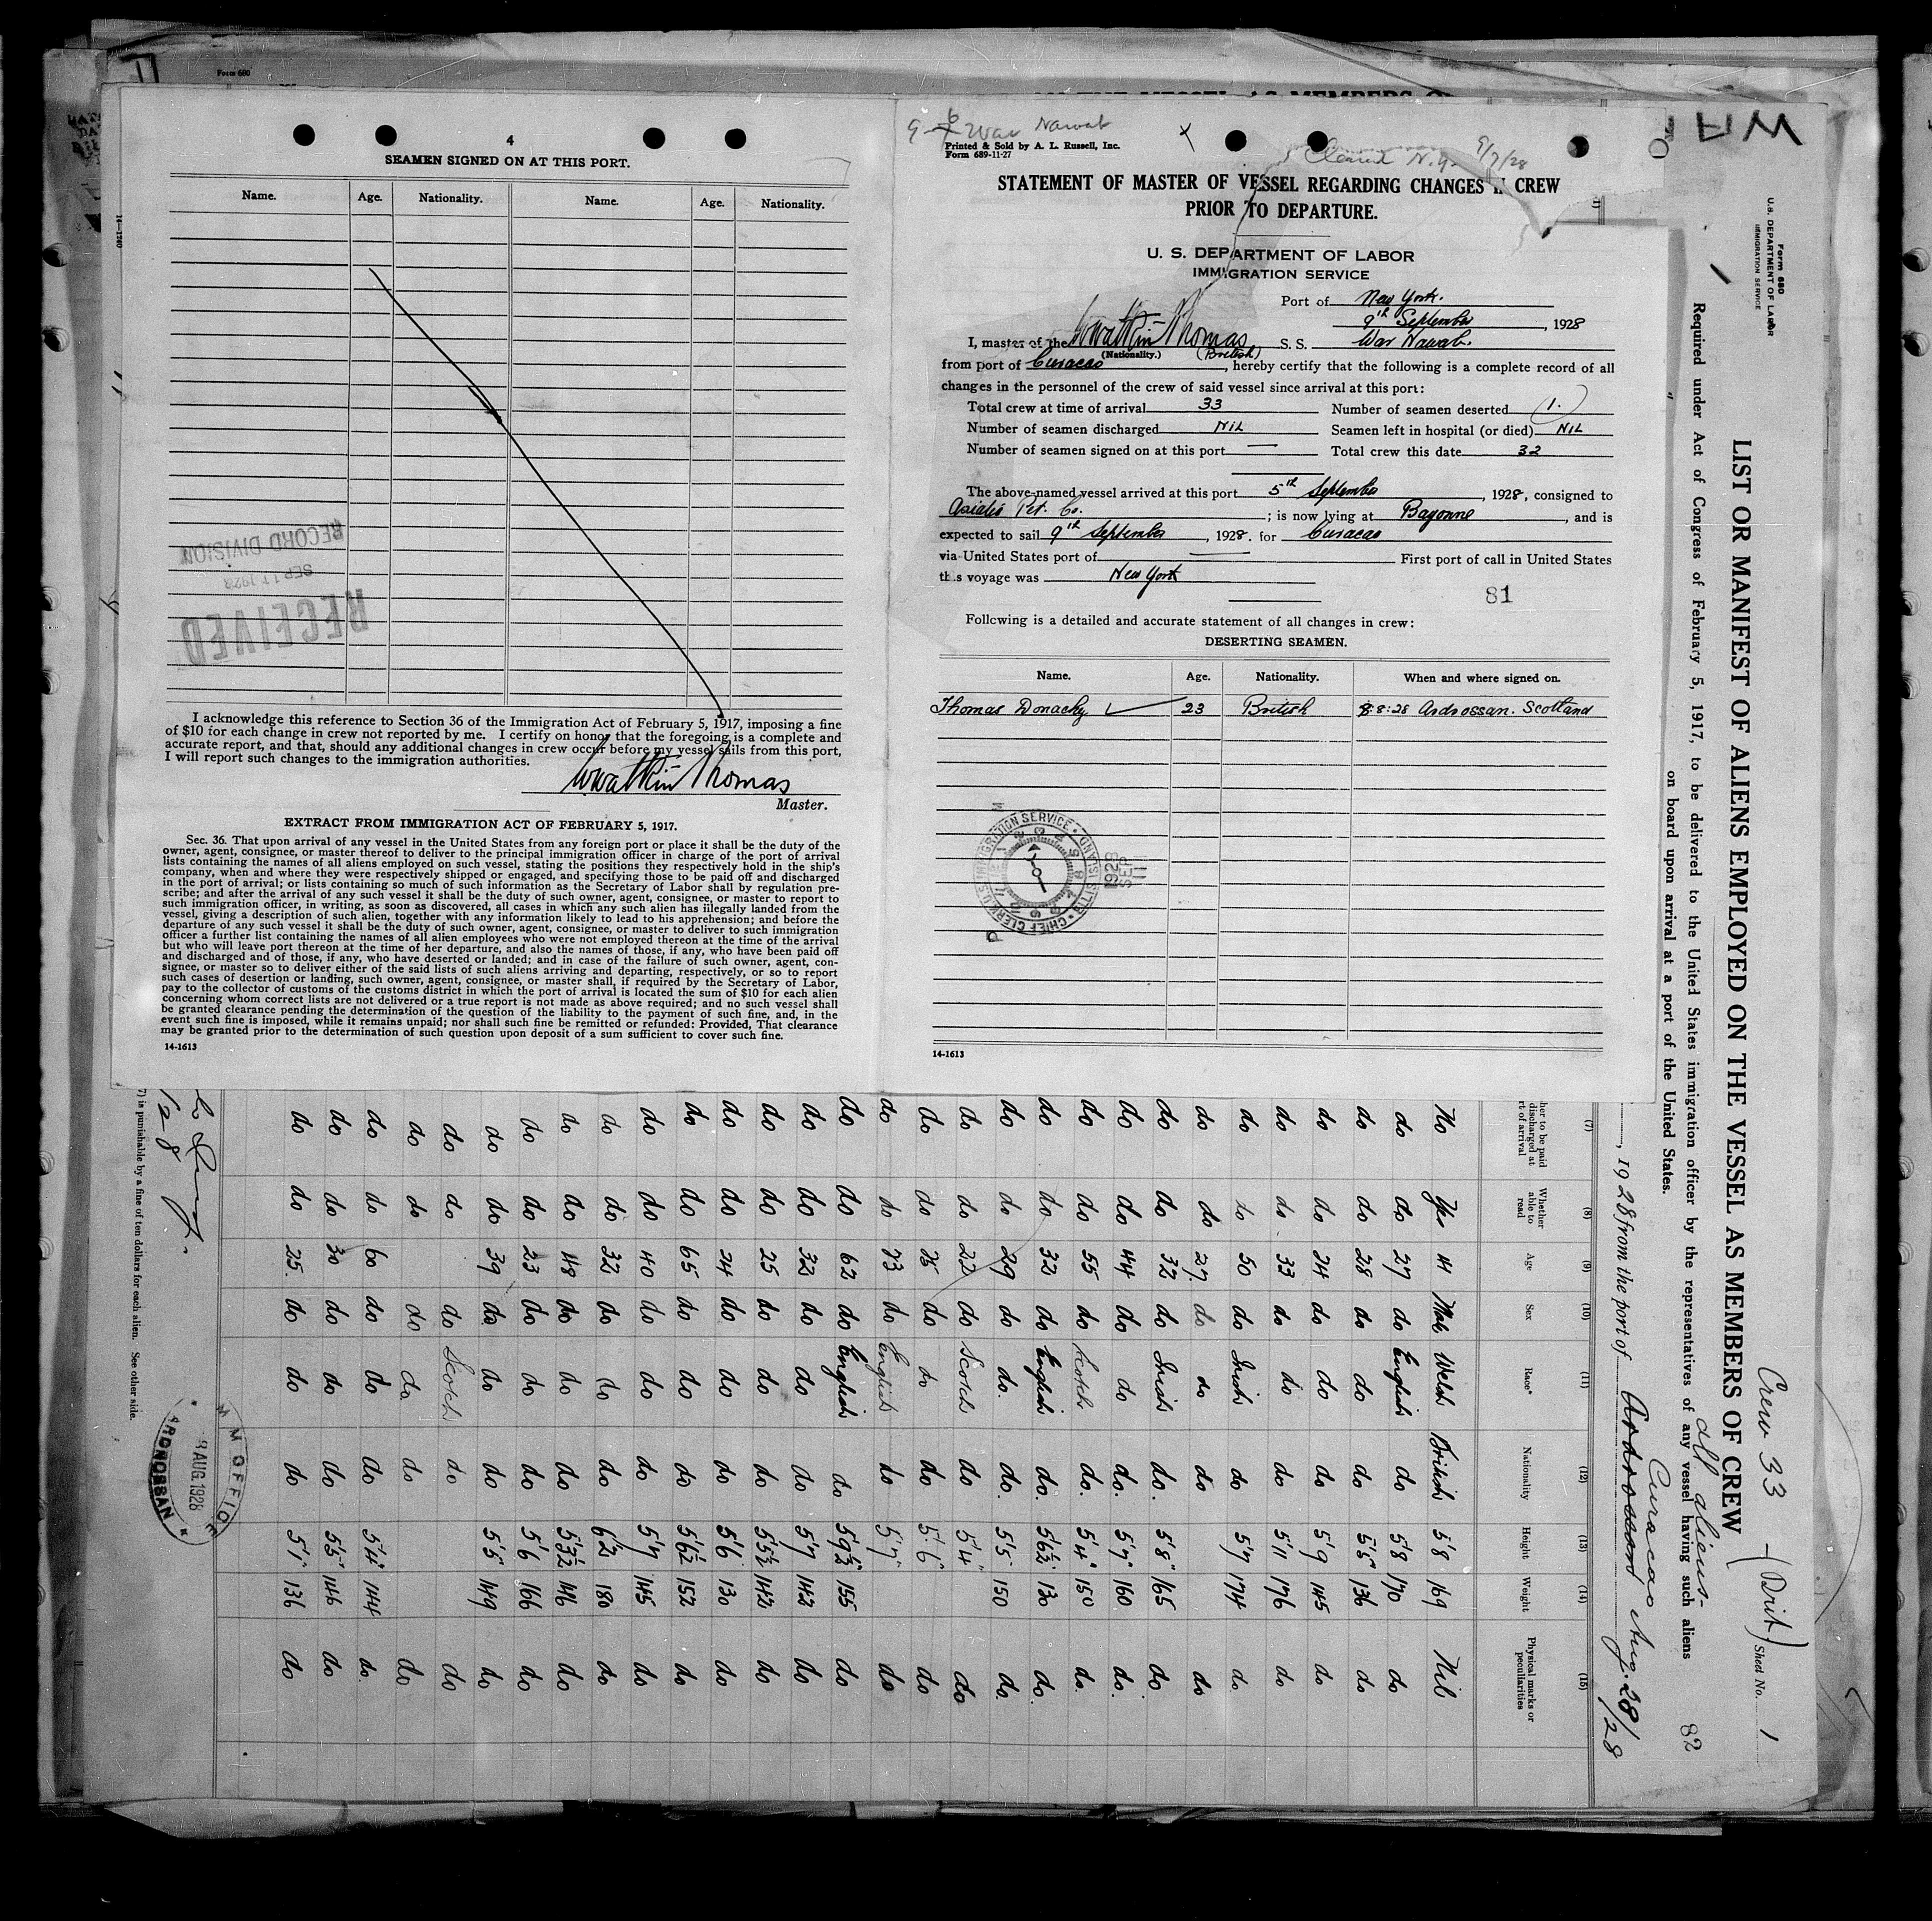 Form 680
4
SEAMEN SIGNED ON AT THIS PORT.
Name. Age. Nationality. Name. Age. Nationality.
RECEIVED
SEP 11 1928
RECORD DIVISION
I acknowledge this reference to Section 36 of the Immigration Act of February 5, 1917, imposing a fine
of $10 for each change in crew not reported by me. I certify on honor that the foregoing is a complete and
accurate report, and that, should any additional changes in crew occur before my vessel sails from this port,
I will report such changes to the immigration authorities.
Watkin Thomas
Master.
EXTRACT FROM IMMIGRATION ACT OF FEBRUARY 5, 1917.
Sec. 36. That upon arrival of any vessel in the United States from any foreign port or place it shall be the duty of the
owner, agent, consignee, or master thereof to deliver to the principal immigration officer in charge of the port of arrival
lists containing the names of all aliens employed on such vessel, stating the positions they respectively hold in the ship's
company, when and where they were respectively shipped or engaged, and specifying those to be paid off and discharged
in the port of arrival; or lists containing so much of such information as the Secretary of Labor shall by regulation pre-
scribe; and after the arrival of any such vessel it shall be the duty of such owner, agent, consignee, or master to report to
such immigration officer, in writing, as soon as discovered, all cases in which any such alien has illegally landed from the
vessel, giving a description of such alien, together with any information likely to lead to his apprehension; and before the
departure of any such vessel it shall be the duty of such owner, agent, consignee, or master to deliver to such immigration
officer a further list containing the names of all alien employees who were not employed thereon at the time of the arrival
but who will leave port thereon at the time of her departure, and also the names of those, if any, who have been paid off
and discharged and of those, if any, who have deserted or landed; and in case of the failure of such owner, agent, con-
signee, or master so to deliver either of the said lists of such aliens arriving and departing, respectively, or so to report
such cases of desertion or landing, such owner, agent, consignee, or master shall, if required by the Secretary of Labor,
pay to the collector of customs of the customs district in which the port of arrival is located the sum of $10 for each alien
concerning whom correct lists are not delivered or a true report is not made as above required; and no such vessel shall
be granted clearance pending the determination of the question of the liability to the payment of such fine, and, in the
event such fine is imposed, while it remains unpaid; nor shall such fine be remitted or refunded: Provided, That clearance
may be granted prior to the determination of such question upon deposit of a sum sufficient to cover such fine.
14-1613
War Nawab
Printed & Sold by A. L. Russell, Inc.
Form 689-11-27
Cleared N.Y. 9/9/28
STATEMENT OF MASTER OF VESSEL REGARDING CHANGES IN CREW
PRIOR TO DEPARTURE.
U. S. DEPARTMENT OF LABOR
IMMIGRATION SERVICE
Port of New York.
9th September, 1928
I, master of the Watkin Thomas S. S. War Nawab.
(Nationality.) (British)
from port of Curacao, hereby certify that the following is a complete record of all
changes in the personnel of the crew of said vessel since arrival at this port:
Total crew at time of arrival 33 Number of seamen deserted 1.
Number of seamen discharged Nil Seamen left in hospital (or died) Nil
Number of seamen signed on at this port — Total crew this date 32
The above-named vessel arrived at this port 5th September, 1928, consigned to
Asiatic Pet. Co.; is now lying at Bayonne, and is
expected to sail 9th September, 1928. for Curacao
via United States port of — First port of call in United States
this voyage was New York
81
Following is a detailed and accurate statement of all changes in crew:
DESERTING SEAMEN.
Name. Age. Nationality. When and where signed on.
Thomas Donachy 23 British 8:8:28 Ardrossan. Scotland
IMMIGRATION SERVICE • ELLIS ISLAND • CHIEF CLERK
1928 SEP 11
14-1613
Form 680
U.S. DEPARTMENT OF LABOR
IMMIGRATION SERVICE
Crew 33 — (Brit) Sheet No. 1
LIST OR MANIFEST OF ALIENS EMPLOYED ON THE VESSEL AS MEMBERS OF CREW
all aliens
Required under Act of Congress of February 5, 1917, to be delivered to the United States immigration officer by the representatives of any vessel having such aliens
on board upon arrival at a port of the United States.
82
Curacao Aug. 28/28
, 1928 from the port of Ardrossan
(7) (8) (9) (10) (11) (12) (13) (14) (15)
her to be paid discharged at rt of arrival Whether able to read Age Sex Race* Nationality Height Weight Physical marks or peculiarities
No Yes 41 Male Welsh British 5'8 169 Nil
do do 27 do English do 5'8 170 do
do do 28 do do do 5'8" 136 do
do do 24 do do do 5'9 145 do
do do 33 do do do 5'11 176 do
do do 50 do Irish do 5'7 174 do
do do 27 do do do do
do do 32 do Irish do. 5'8" 165 do
do do 44 do do do. 5'7" 160 do.
do do 55 do Scotch do. 5'4" 150 do.
do do 32 do English do. 5'6½ 130 do.
do do 29 do do. do. 5'5 150 do.
do do 22 do Scotch do 5'4" do
do do 25 do do do 5'6" do
do do 73 do English do 5'7" do
do do 62 do English do 5'9½ 155 do
do do 32 do do do 5'7 142 do
do do 25 do do do 5'5½ 142 do
do do 24 do do do 5'6 130 do
do do 65 do do do 5'6½ 152 do
do do 40 do do do 5'7 145 do
do do 32 do do do 6'2 180 do
do do 48 do do do 5'3½ 146 do
do do 23 do do do 5'6 166 do
do do 39 do do do 5'5" 149 do
do do do Scotch do do
do do do do do do
do do 60 do do do 5'4" 144 do.
do do 30 do do do 5'5" 146 do
do do 25. do do do 5'1" 136 do
M M OFFICE
8 AUG. 1928
ARDROSSAN
7) is punishable by a fine of ten dollars for each alien. See other side.